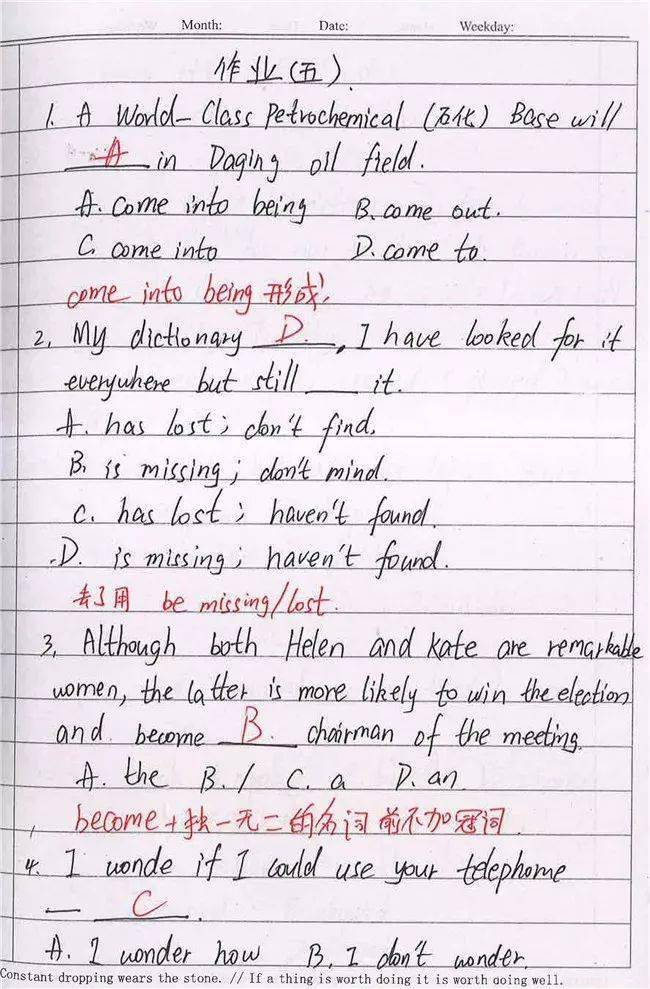 Month: Date: Weekday:
作业(五).
1. A World-Class Petrochemical (石化) Base will
A in Daging oil field.
A. Come into being B. come out.
C. come into D. come to.
come into being 形成.
2, My dictionary D., I have looked for it
everywhere but still ___ it.
A. has lost; don't find.
B. is missing; don't mind.
C. has lost; haven't found.
D. is missing; haven't found.
丢了用 be missing/lost.
3, Although both Helen and Kate are remarkable
women, the latter is more likely to win the election
and become B. chairman of the meeting.
A. the B. / C. a D. an.
become + 独一无二的名词前不加冠词.
4. I wonde if I could use your telephome
— C.
A. I wonder how B. I don't wonder.
Constant dropping wears the stone. // If a thing is worth doing it is worth doing well.